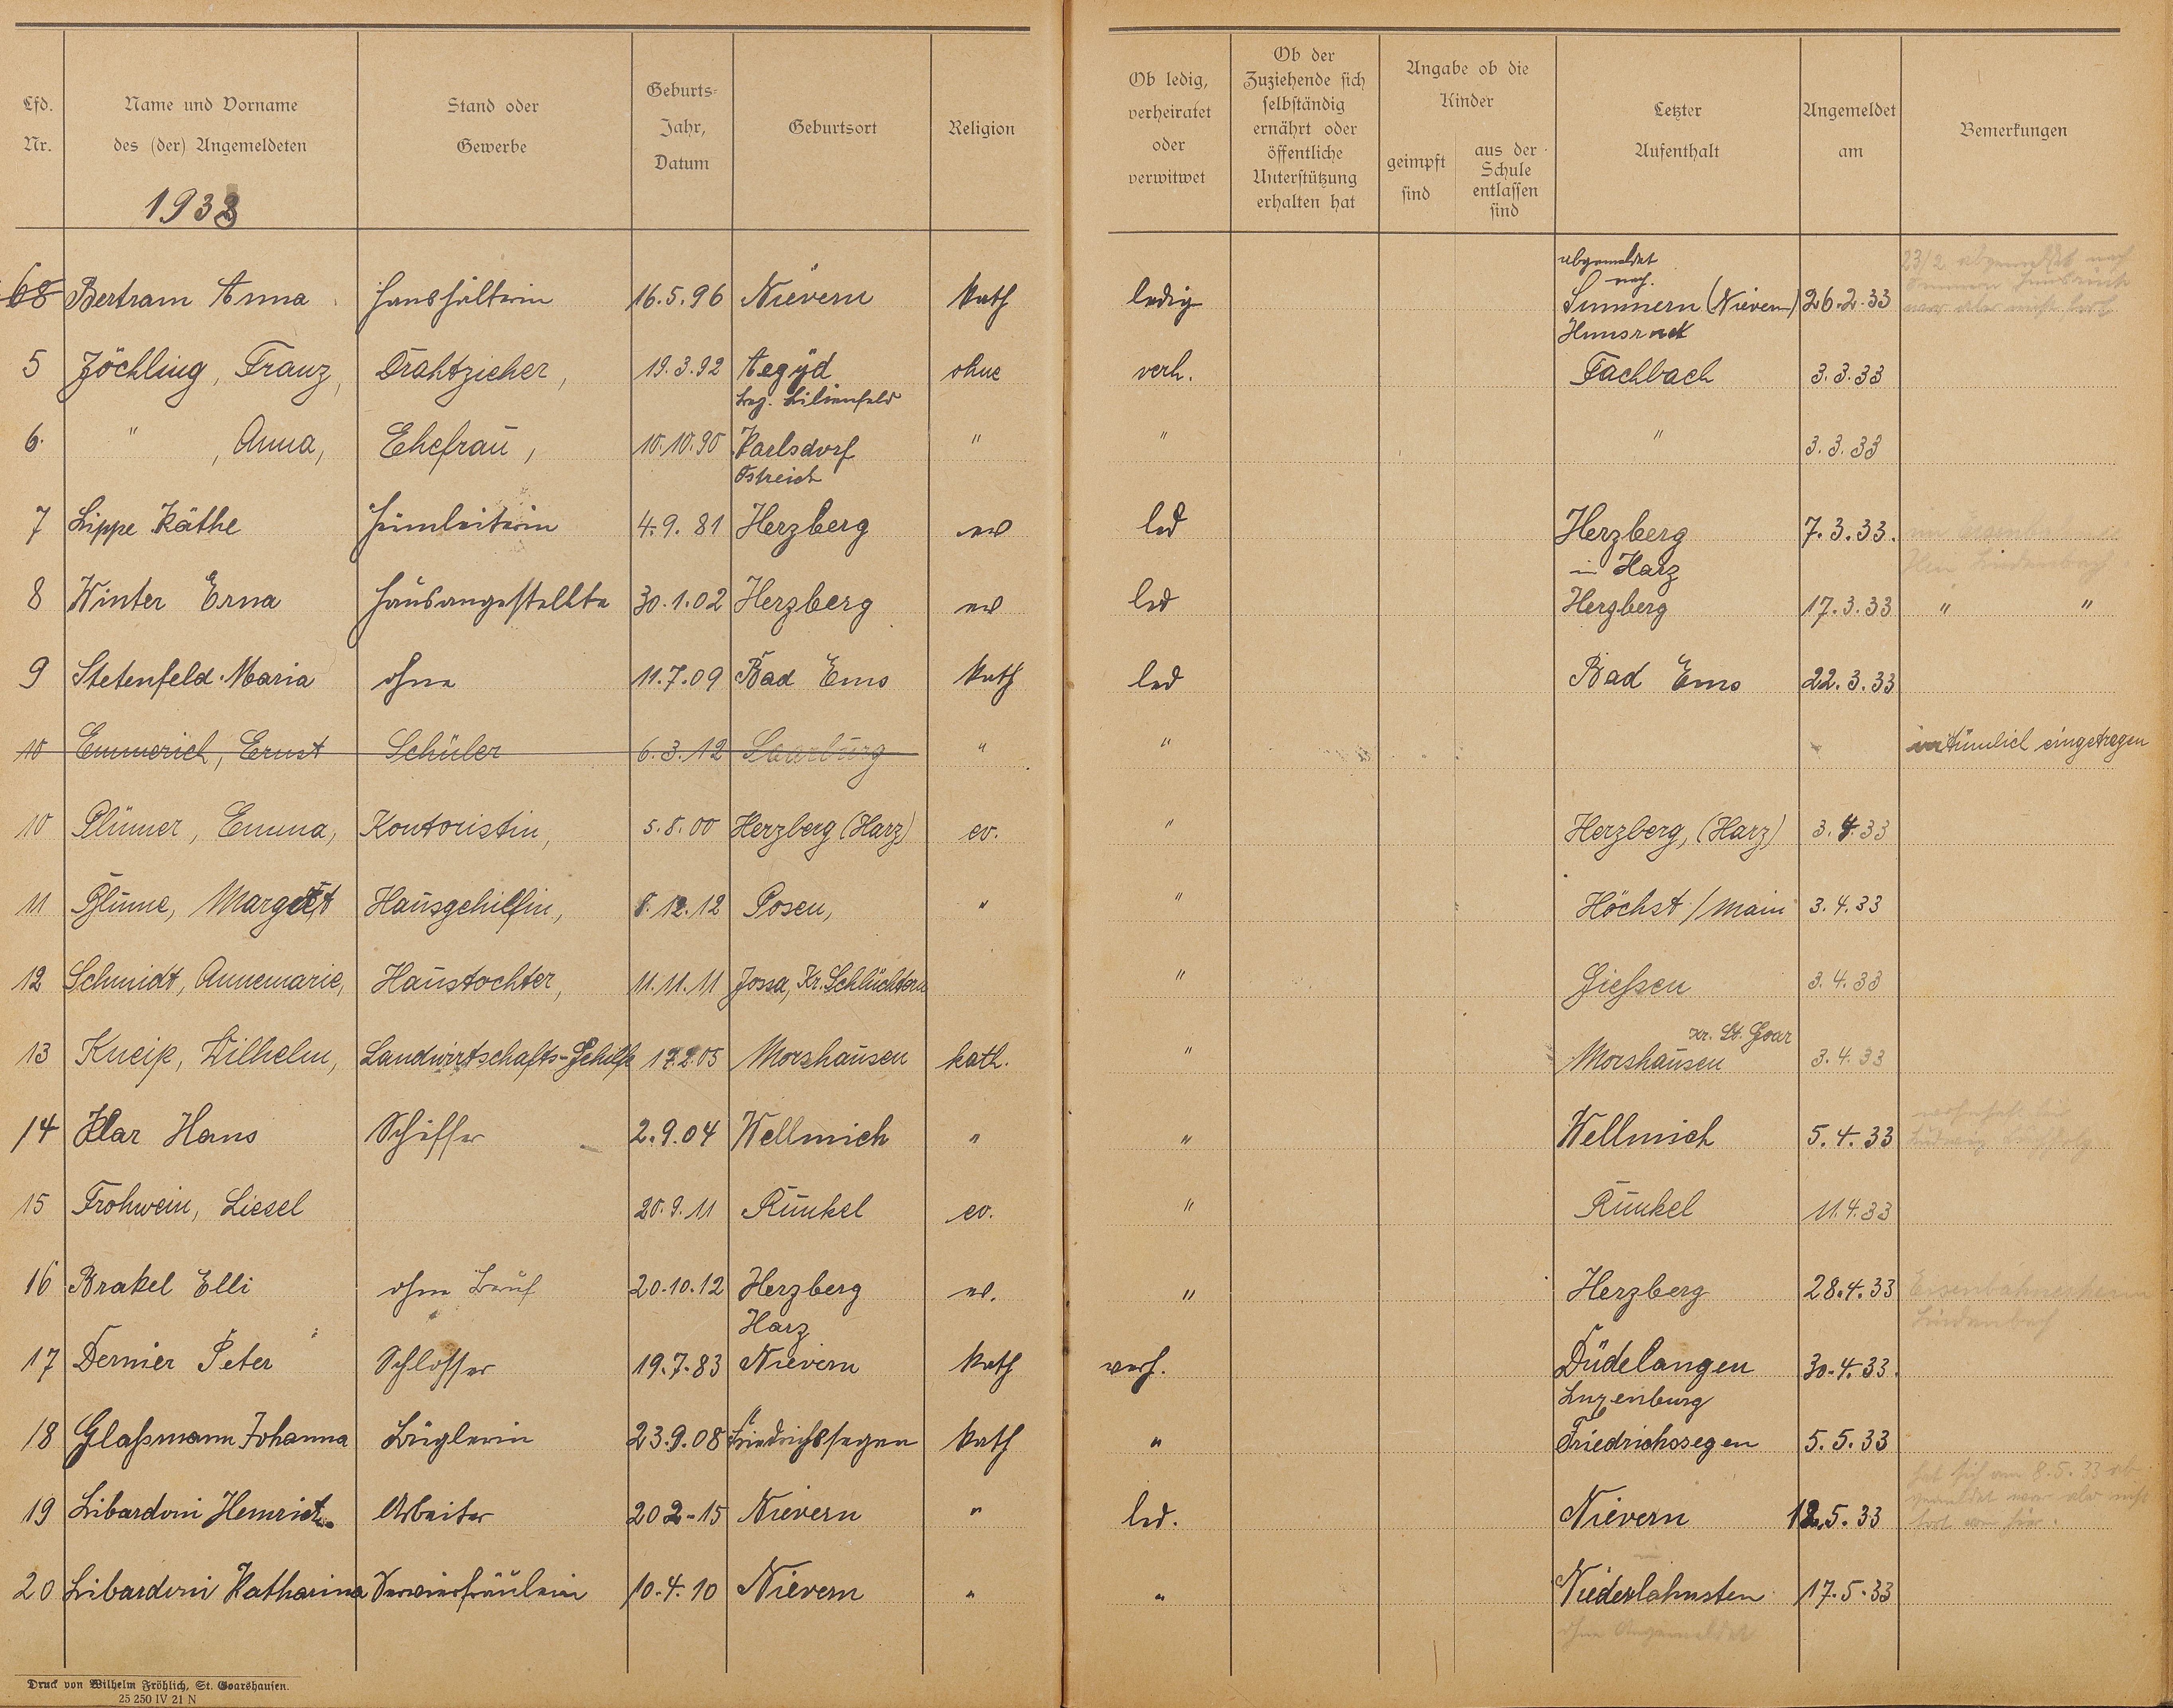 Lfd. Nr.
Name und Vorname des (der) Angemeldeten
Stand oder Gewerbe
Geburts-Jahr, Datum
Geburtsort
Religion
Ob ledig, verheiratet oder verwitwet
Ob der Zuziehende sich selbständig ernährt oder öffentliche Unterstützung erhalten hat
Angabe ob die Kinder
geimpft sind
aus der Schule entlassen sind
Letzter Aufenthalt
Angemeldet am
Bemerkungen
1933
abgemeldet
nach
68 Bertram Anna Haushälterin 16.5.96 Nievern kath ledig Simmern (Nievern) 26.2.33
Hunsrück
5 Jöchling, Franz, Drahtzieher, 19.3.92 Aegyd ohne verh. Fachbach 3.3.33
Bez. Lilienfeld
6. " , Anna, Ehefrau, 10.10.90 Karlsdorf " " " 3.3.33
Östreich
7 Lippe Käthe Heimleiterin 4.9.81 Herzberg ev led Herzberg 7.3.33.
in Harz
8 Winter Erna Hausangestellte 30.1.02 Herzberg ev led Herzberg 17.3.33 " "
9 Stetenfeld Maria ohne 11.7.09 Bad Ems kath led Bad Ems 22.3.33
10 Emmerich, Ernst Schüler 6.3.12 Saarburg " " irrtümlich eingetragen
10 Plümer, Emma, Kontoristin, 5.8.00 Herzberg (Harz) ev. " Herzberg, (Harz) 3.4.33
11 Blume, Margret Hausgehilfin, 8.12.12 Posen, " " Höchst / Main 3.4.33
12 Schmidt, Annemarie, Haustochter, 11.11.11 Jossa, Kr. Schlüchtern " Gießen 3.4.33
Kr. St. Goar
13 Kneip, Wilhelm, Landwirtschafts-Gehilfe 17.2.05 Morshausen kath. " Morshausen 3.4.33
14 Klar Hans Schiffer 2.9.04 Wellmich " " Wellmich 5.4.33
15 Frohwein, Liesel 20.9.11 Runkel ev. " Runkel 11.4.33
16 Brakel Elli ohne Beruf 20.10.12 Herzberg ev. " Herzberg 28.4.33
Harz
Lindenbach
17 Dernier Peter Schlosser 19.7.83 Nievern kath verh. Düdelangen 30.4.33.
Luxenburg
18 Glaßmann Johanna Büglerin 23.9.08 Friedrichssegen kath " Friedrichssegen 5.5.33
hat sich am 8.5.33 ab-
19 Libardoni Heinrich Arbeiter 20 2-15 Nievern " led. Nievern 12.5.33
20 Libardoni Katharina Servierfräulein 10.4.10 Nievern " " Niederlahnsten 17.5.33
ohne Angemeldet
Druck von Wilhelm Fröhlich, St. Goarshausen.
25 250 IV 21 N